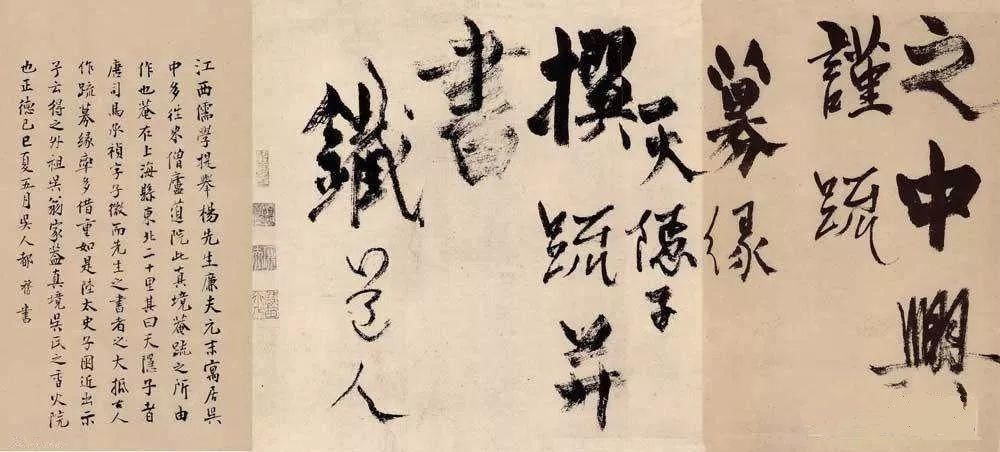 之中興
謹疏
募緣
天隱子
撰疏并
書
鐵道人
江西儒學提舉楊先生廉夫元末寓居吳
中多往來僧廬道院此真境菴疏之所由
作也菴在上海縣東北二十里其曰天隱子者
唐司馬承禎字子微而先生之書者之大抵古人
作疏募緣率多借重如是陸太史子囦近出示
予云得之外祖吳翁家蓋真境吳氏之香火院
也正德己巳夏五月吳人都穆書